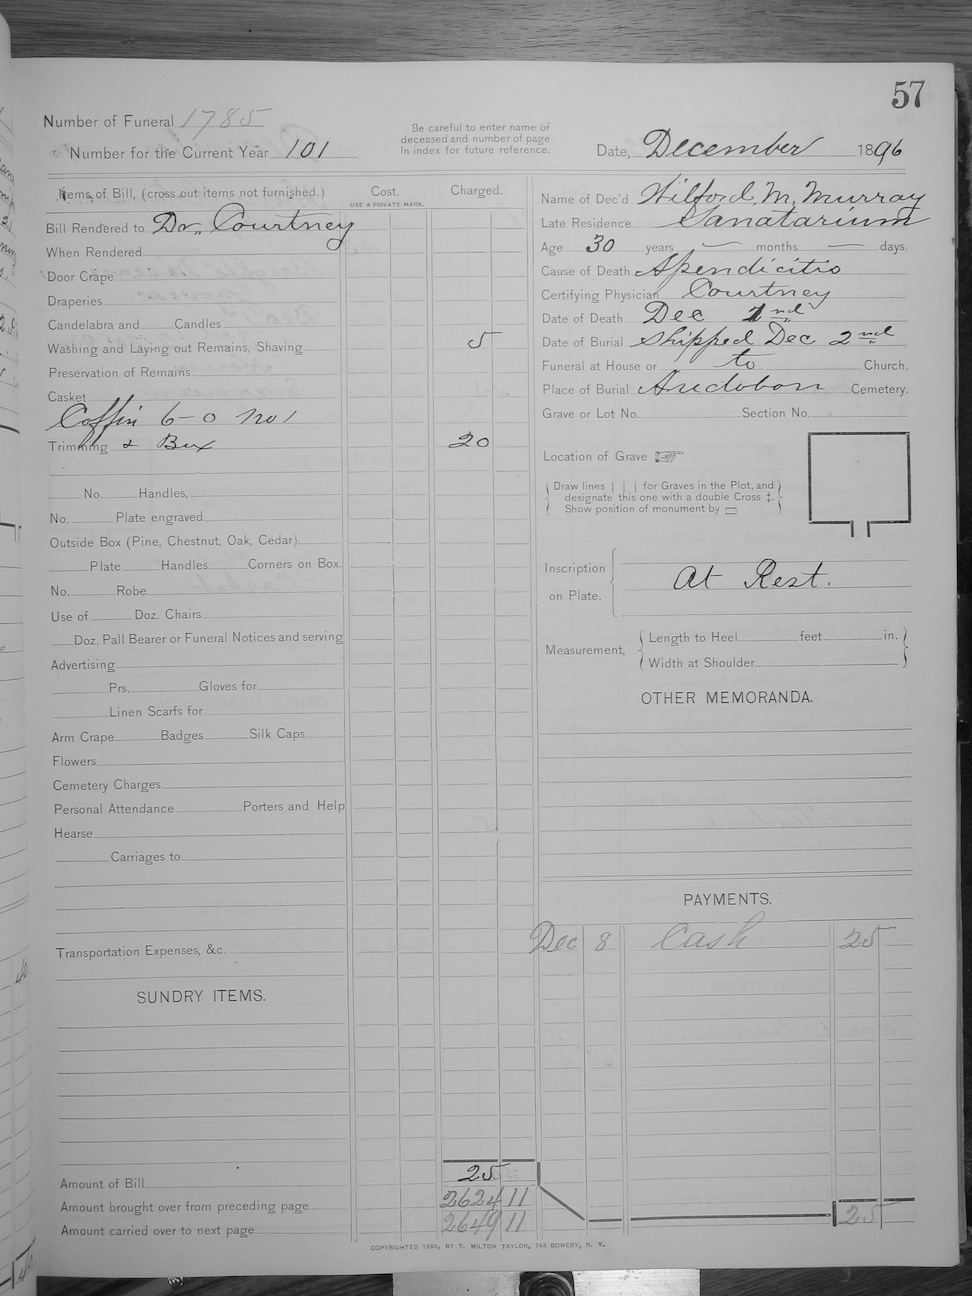 57
Number of Funeral 1785
Number for the Current Year 101
Be careful to enter name of
deceased and number of page
In index for future reference.
Date, December 1896
Items of Bill, (cross out items not furnished.) Cost. Charged.
USE A PRIVATE MARK.
Bill Rendered to Dr. Courtney
When Rendered
Door Crape
Draperies
Candelabra and Candles
Washing and Laying out Remains, Shaving 5
Preservation of Remains
Casket
Coffin 6-0 No 1
Trimming & Box 20
No. Handles,
No. Plate engraved
Outside Box (Pine, Chestnut, Oak, Cedar)
Plate Handles Corners on Box.
No. Robe
Use of Doz. Chairs
Doz. Pall Bearer or Funeral Notices and serving
Advertising
Prs. Gloves for
Linen Scarfs for
Arm Crape Badges Silk Caps
Flowers
Cemetery Charges
Personal Attendance Porters and Help
Hearse
Carriages to
Transportation Expenses, &c.
SUNDRY ITEMS.
Amount of Bill 25
Amount brought over from preceding page 2624 11
Amount carried over to next page 2649 11
Name of Dec'd Wilford M. Murray
Late Residence Sanatarium
Age 30 years — months — days.
Cause of Death Apendicitis
Certifying Physician Courtney
Date of Death Dec nd
Date of Burial Shipped Dec 2nd
Funeral at House or to Church.
Place of Burial Audobon Cemetery.
Grave or Lot No. Section No.
Location of Grave ☞
Draw lines | | | for Graves in the Plot, and
designate this one with a double Cross ‡.
Show position of monument by ▭
Inscription
on Plate. At Rest.
Measurement, Length to Heel feet in.
Width at Shoulder
OTHER MEMORANDA.
PAYMENTS.
Dec 8 Cash 25
25
COPYRIGHTED 1890, BY T. MILTON TAYLOR, 163 BOWERY, N. Y.